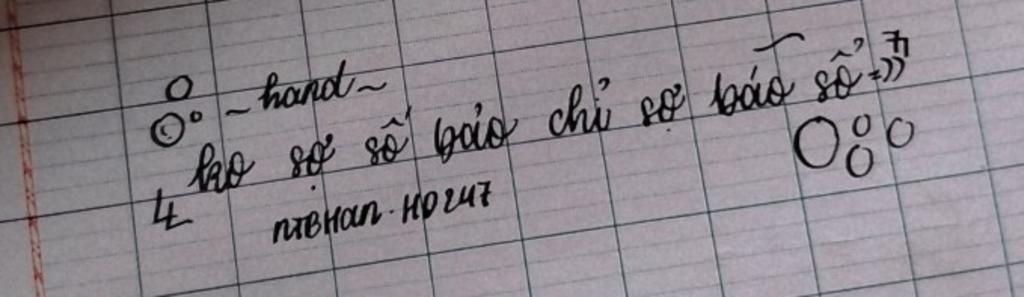 ~ hand ~
ko sợ số bảo chỉ sợ báo số =))
NTBHAN.HD247